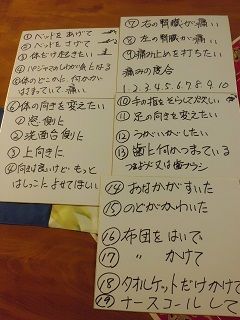 ①ベッドをあげて
②ベッドをさげて
③体だけ起きたい
④パジャマのしわが気になる
⑤体のどこかに何かが
はさまっていて痛い
⑥体の向きを変えたい
①窓側
②洗面台側に
③上向きに
④向きは良いけど もっと
はしっこによせてほしい
⑦右の腎臓が痛い
⑧左の腎臓が痛い
⑨痛み止めを打ちたい
痛みの度合
1.2.3.4.5.6.7.8.9.10
⑩手の指をそらしてほしい
⑪足の向きを変えたい
⑫うがいがしたい
⑬歯と何かつまっている
つまようじ又は歯ブラシ
⑭おなかがすいた
⑮のどがかわいた
⑯布団をはいで
⑰〃 かけて
⑱タオルケットだけかけて
⑲ナースコールして